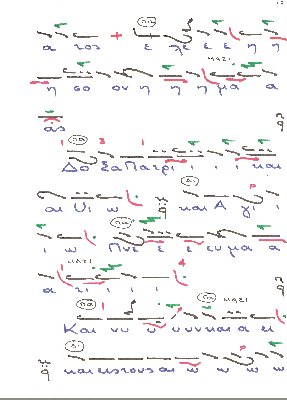 α τος ε λε ε ε η η
ΜΑΖΙ
η σο ον η η η μα α
ας
Δο ξα Πα τρι ι ι και
αι Υι ω και Α γι ι
ι ω Πνε ε ε ευ μα α
ΜΑΖΙ
α τι ι ι ι
ΜΑΖΙ
Και νυ υ υ υν και α ει
και εις τους αι ω ω ω ω